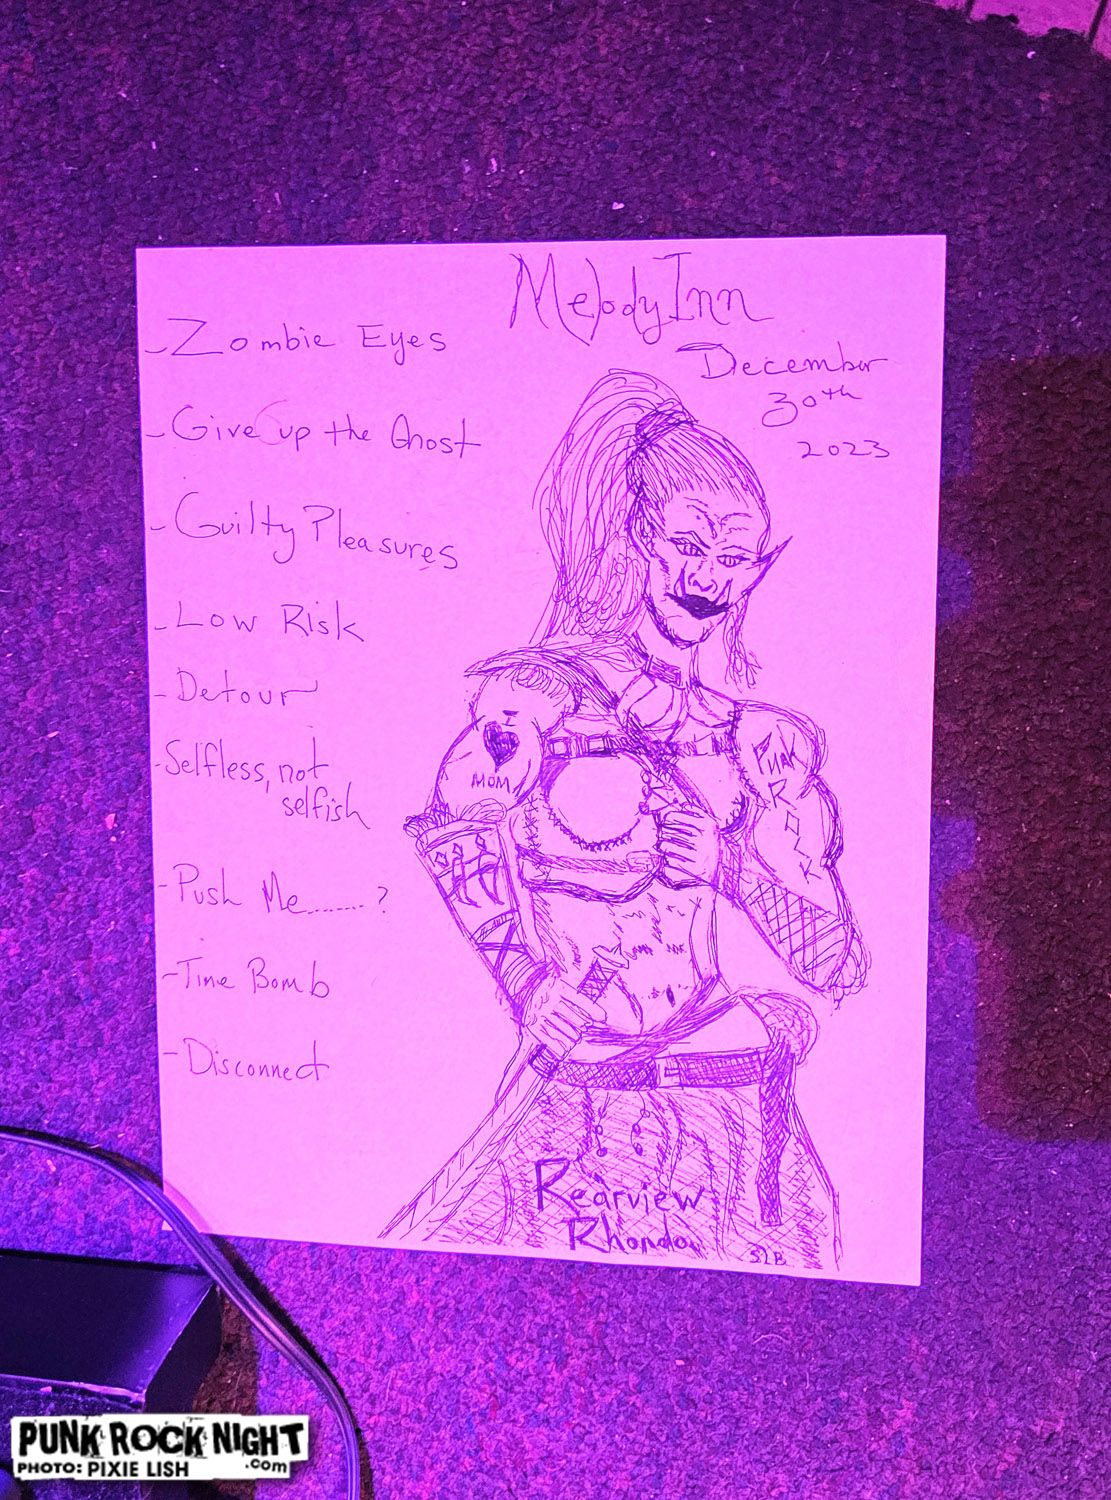 Melody Inn
December
30th
2023
- Zombie Eyes
- Give up the Ghost
- Guilty Pleasures
- Low Risk
- Detour
- Selfless, not
selfish
- Push Me........?
- Time Bomb
- Disconnect
MOM
PUNK
ROCK
Rearview
Rhonda
SLB
PUNK ROCK NIGHT
.com
PHOTO: PIXIE LISH